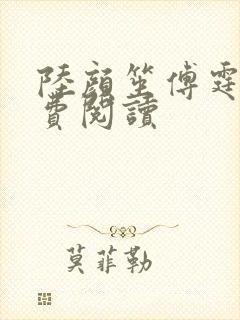 陸顏笙傅霆
費閱讀
莫菲勒